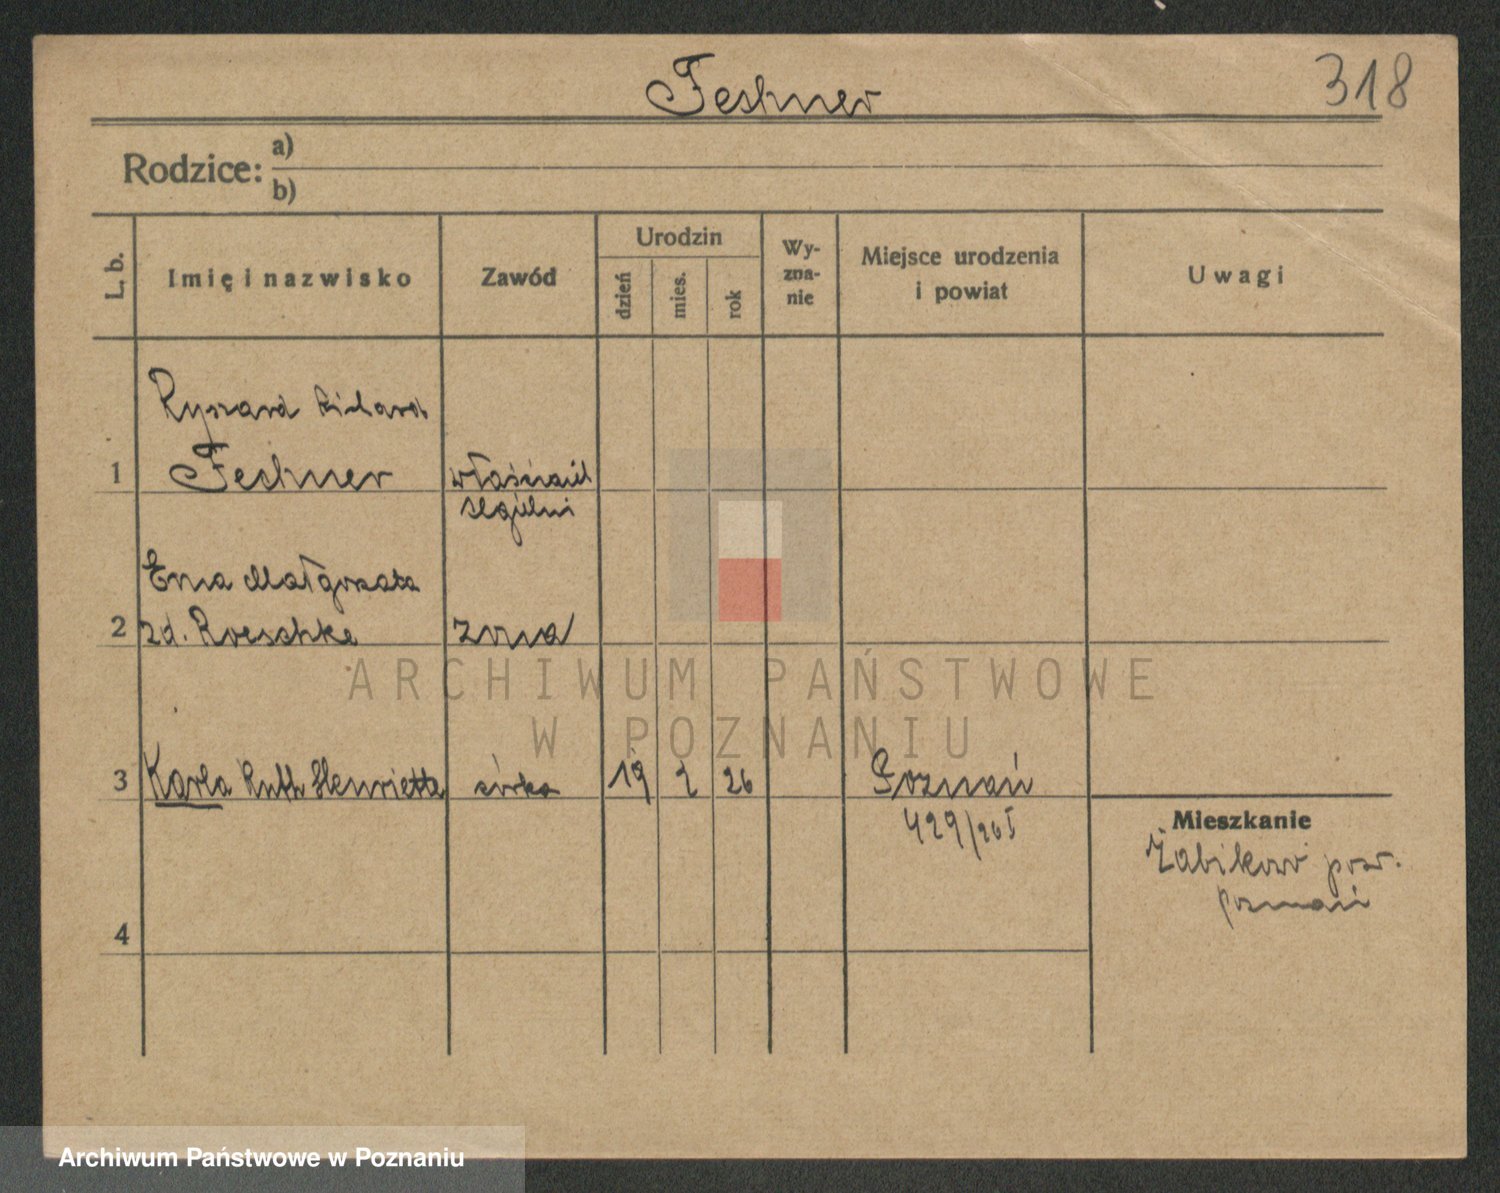 Feshner
318
Rodzice:
a)
b)
L. b.
Imię i nazwisko
Zawód
Urodzin
dzień
mies.
rok
Wy-
zna-
nie
Miejsce urodzenia
i powiat
Uwagi
Ryszard Rihard
1
Feshner
właściciel
cegielni
Ema Małgorzata
2
zd. Roeschke
żona
3
Karla Ruth Henriette
córka
19
2
26
Poznań
429/26 I
Mieszkanie
Żabikowo pow.
Poznań
4
ARCHIWUM PAŃSTWOWE
W POZNANIU
Archiwum Państwowe w Poznaniu